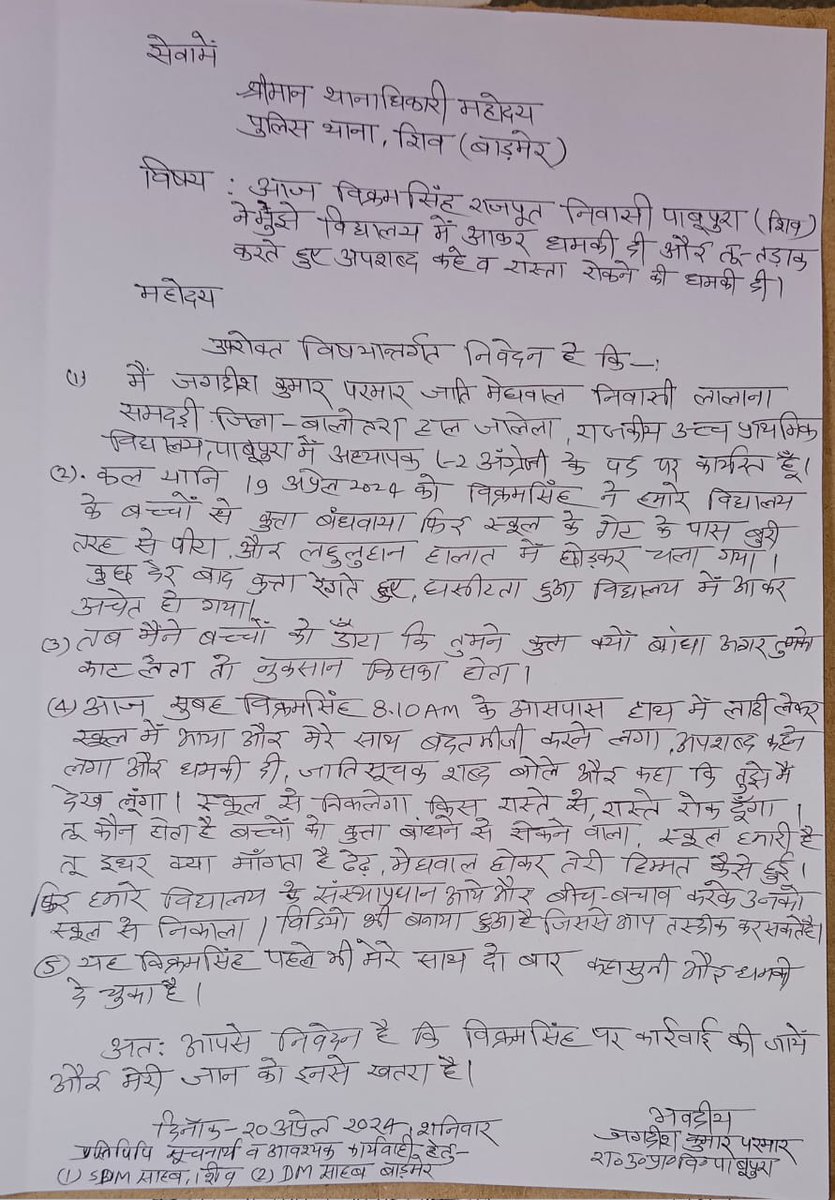 सेवामें
श्रीमान थानाधिकारी महोदय
पुलिस थाना, शिव (बाड़मेर)
विषय : आज विक्रमसिंह राजपूत निवासी पाबूपुरा (शिव)
ने मुझे विद्यालय में आकर धमकी दी और तू-तड़ाक
करते हुए अपशब्द कहे व रास्ता रोकने की धमकी दी।
महोदय
उपरोक्त विषयान्तर्गत निवेदन है कि—:
(1) मैं जगदीश कुमार परमार जाति मेघवाल निवासी लालाना
समदड़ी जिला-बालोतरा हाल जालेला, राजकीय उच्च प्राथमिक
विद्यालय, पाबूपुरा में अध्यापक L-2 अंग्रेजी के पद पर कार्यरत हूँ।
(2). कल यानि 19 अप्रेल 2024 को विक्रमसिंह ने हमारे विद्यालय
के बच्चों से कुत्ता बंधवाया फिर स्कूल के गेट के पास बुरी
तरह से पीटा, और लहुलुहान हालात में छोड़कर चला गया।
कुछ देर बाद कुत्ता रेंगते हुए, घसीटता हुआ विद्यालय में आकर
अचेत हो गया।
(3) तब मैंने बच्चों को डाँटा कि तुमने कुत्ता क्यों बांधा अगर तुमको
काट लेता तो नुकसान किसका होता।
(4) आज सुबह विक्रमसिंह 8.10 AM के आसपास हाथ में लाठी लेकर
स्कूल में आया और मेरे साथ बदतमीजी करने लगा, अपशब्द कहने
लगा और धमकी दी, जातिसूचक शब्द बोले और कहा कि तुझे मैं
देख लूंगा। स्कूल से निकलेगा किस रास्ते से, रास्ते रोक दूँगा।
तू कौन होता है बच्चों को कुत्ता बांधने से रोकने वाला, स्कूल हमारी है
तू इधर क्या माँगता है ढेढ़, मेघवाल होकर तेरी हिम्मत कैसे हुई।
फिर हमारे विद्यालय के संस्थाप्रधान आये और बीच-बचाव करके उनको
स्कूल से निकाला। विडियो भी बनाया हुआ है जिससे आप तस्दीक कर सकते है।
(5) यह विक्रमसिंह पहले भी मेरे साथ दो बार कहासुनी और धमकी
दे चुका है।
अत: आपसे निवेदन है कि विक्रमसिंह पर कार्रवाई की जायें
और मेरी जान को इनसे खतरा है।
दिनाँक-20 अप्रेल 2024, शनिवार
प्रतिपिपि सूचनार्थ व आवश्यक कार्यवाही हेतु-
(1) SDM साहब, शिव (2) DM साहब बाड़मेर
भवदीय
जगदीश कुमार परमार
रा०उ०प्रा०वि० पाबूपुरा